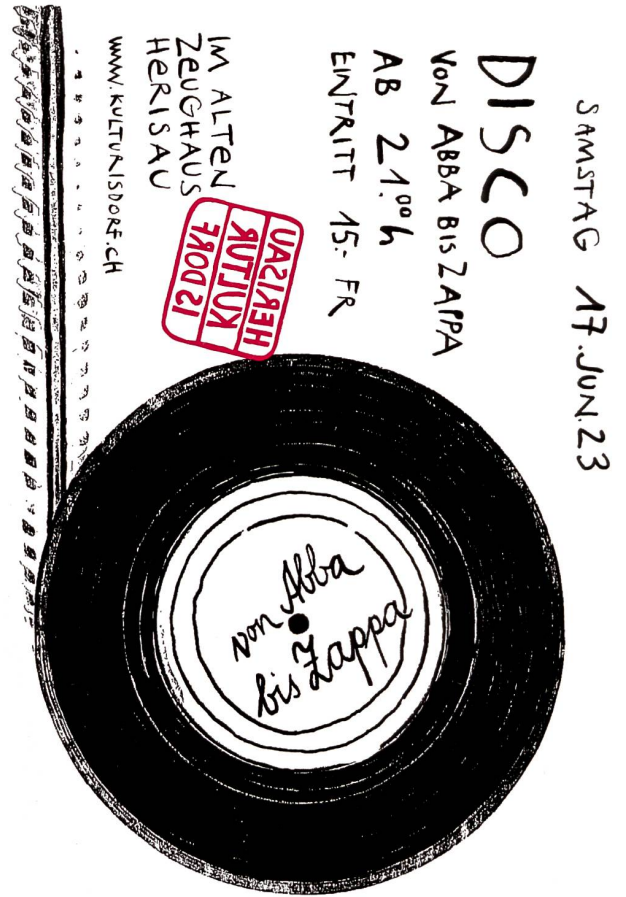 SAMSTAG 17.JUN.23
DISCO
VON ABBA BIS ZAPPA
AB 21.00 h
EINTRITT 15.- FR
IM ALTEN
ZEUGHAUS
HERISAU
WWW.KULTURISDORF.CH
HERISAU
KULTUR
IS DORF
von Abba
bis Zappa